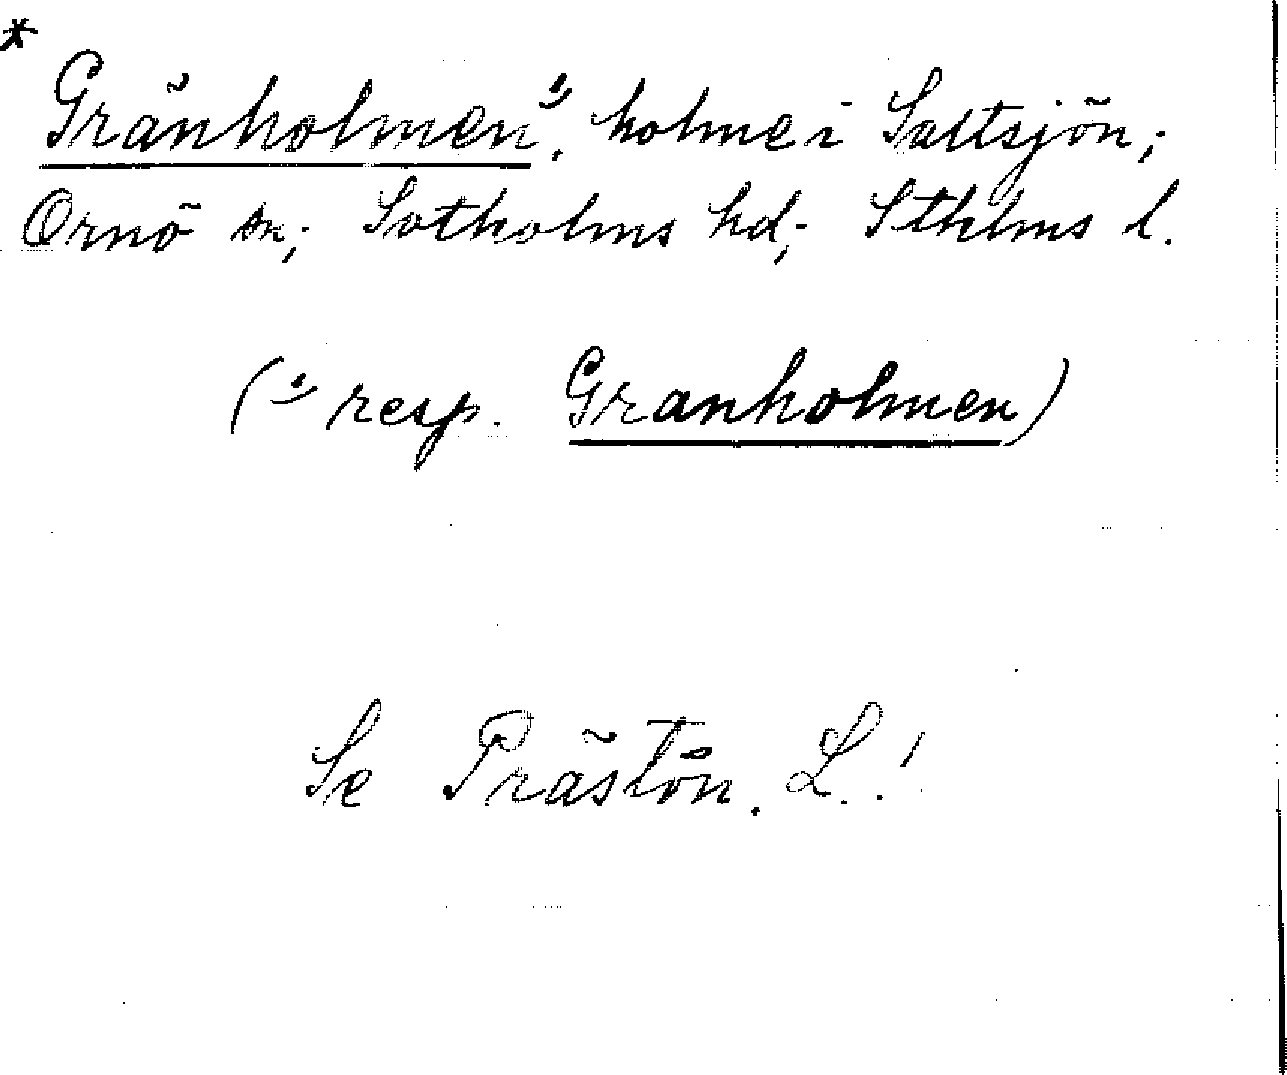 *
Gränholmen ¹⁾, holme i Saltsjön;
Ornö sn; Sotholms hd; Sthlms l.
(¹⁾ resp. Granholmen)
Se Prästön. L.!